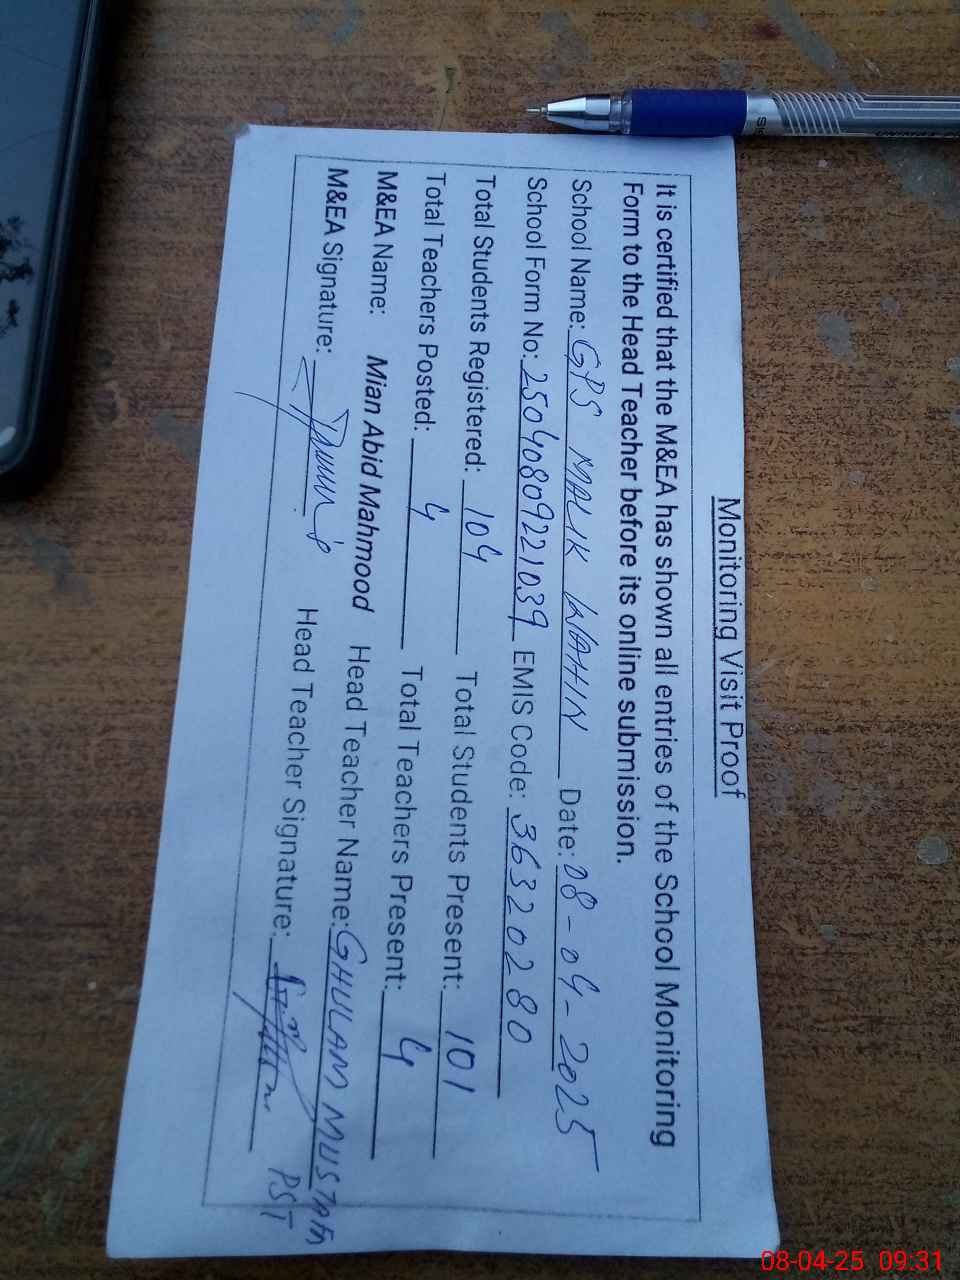 Monitoring Visit Proof
It is certified that the M&EA has shown all entries of the School Monitoring
Form to the Head Teacher before its online submission.
School Name: GPS MALIK WAHIN Date: 08-04-2025
School Form No: 25040809221039 EMIS Code: 36320280
Total Students Registered: 104 Total Students Present: 101
Total Teachers Posted: 4 Total Teachers Present: 4
M&EA Name: Mian Abid Mahmood Head Teacher Name: GHULAM MUSTAFA
M&EA Signature: Head Teacher Signature:
PST
08-04-25 09:31